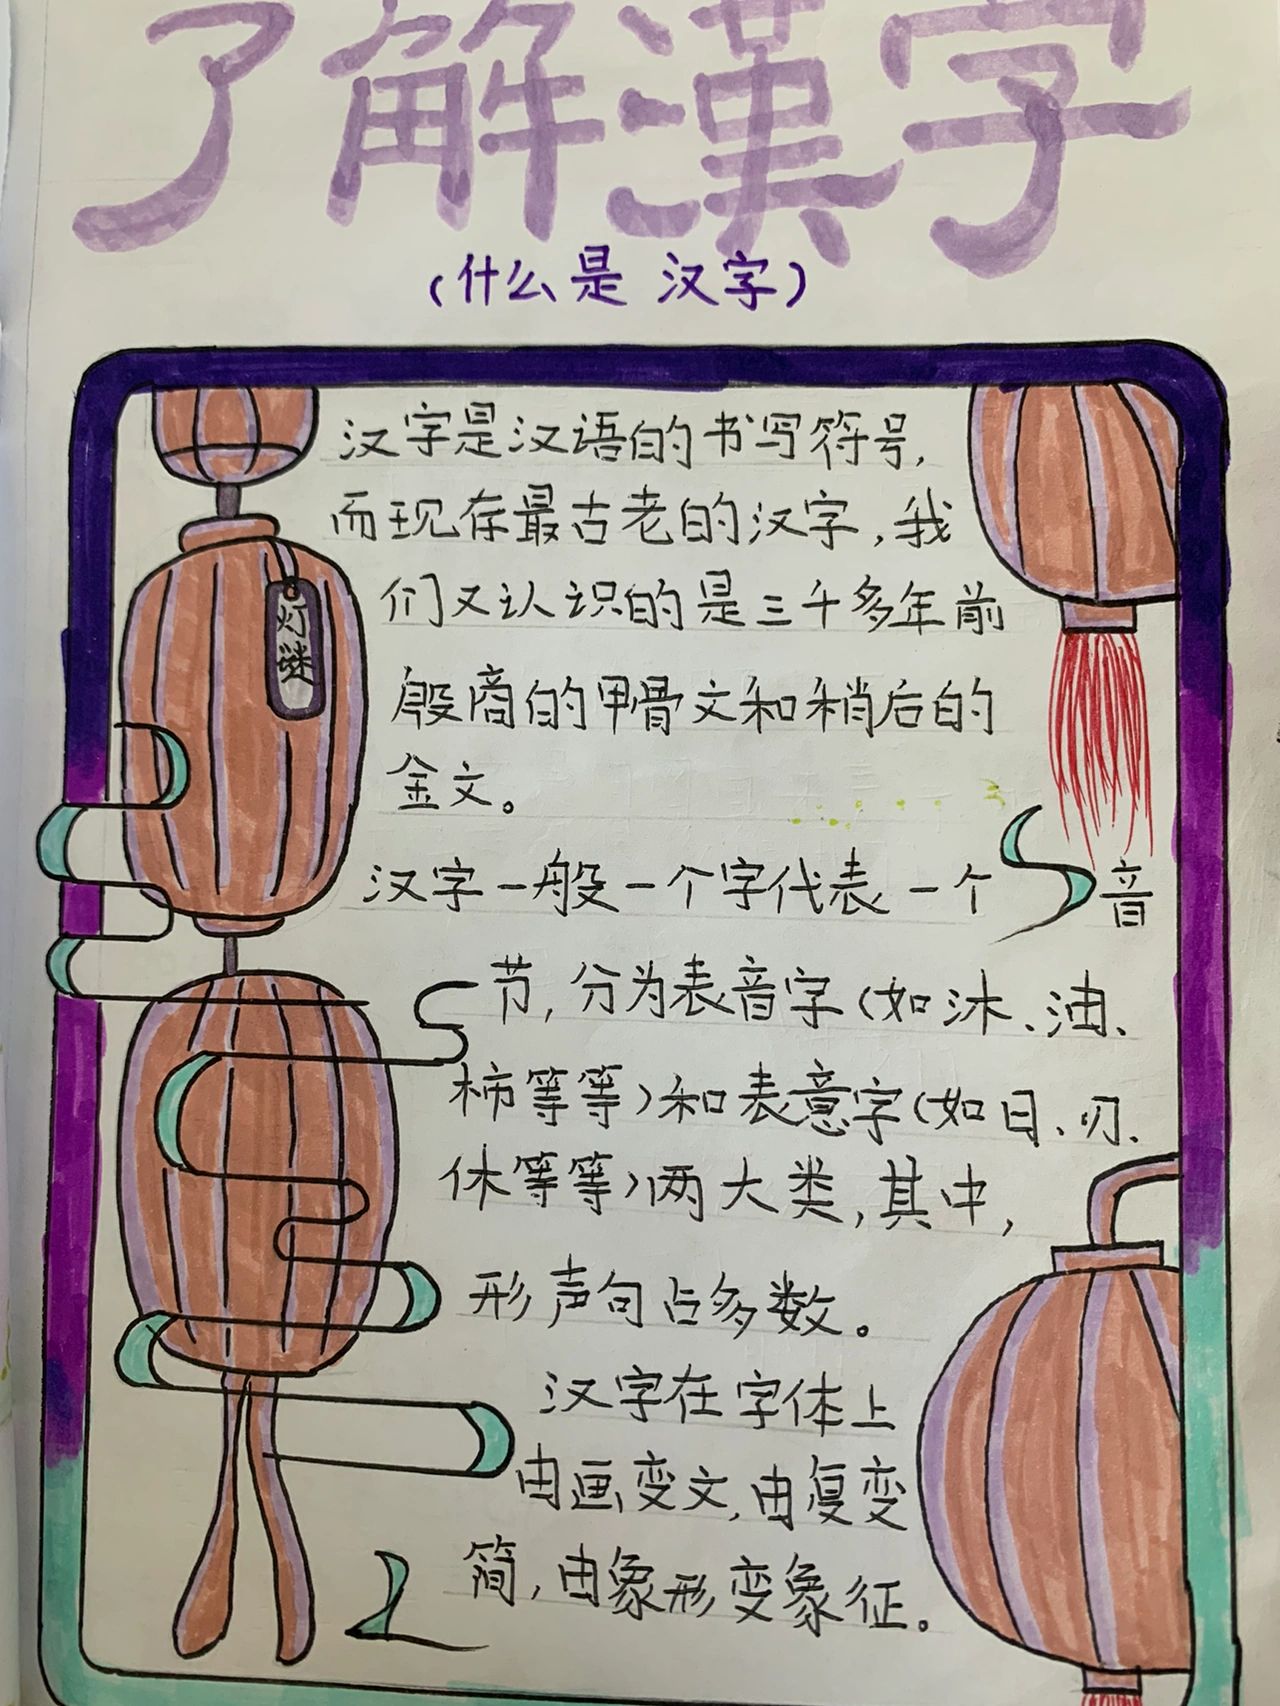 了解漢字
（什么是 汉字）
汉字是汉语的书写符号，
而现存最古老的汉字，我
灯谜
们又认识的是三千多年前
殷商的甲骨文和稍后的
金文。
汉字一般一个字代表一个音
节，分为表音字（如沐、油、
柿等等）和表意字（如日、刃、
休等等）两大类，其中，
形声句占多数。
汉字在字体上
由画变文，由复变
简，由象形变象征。